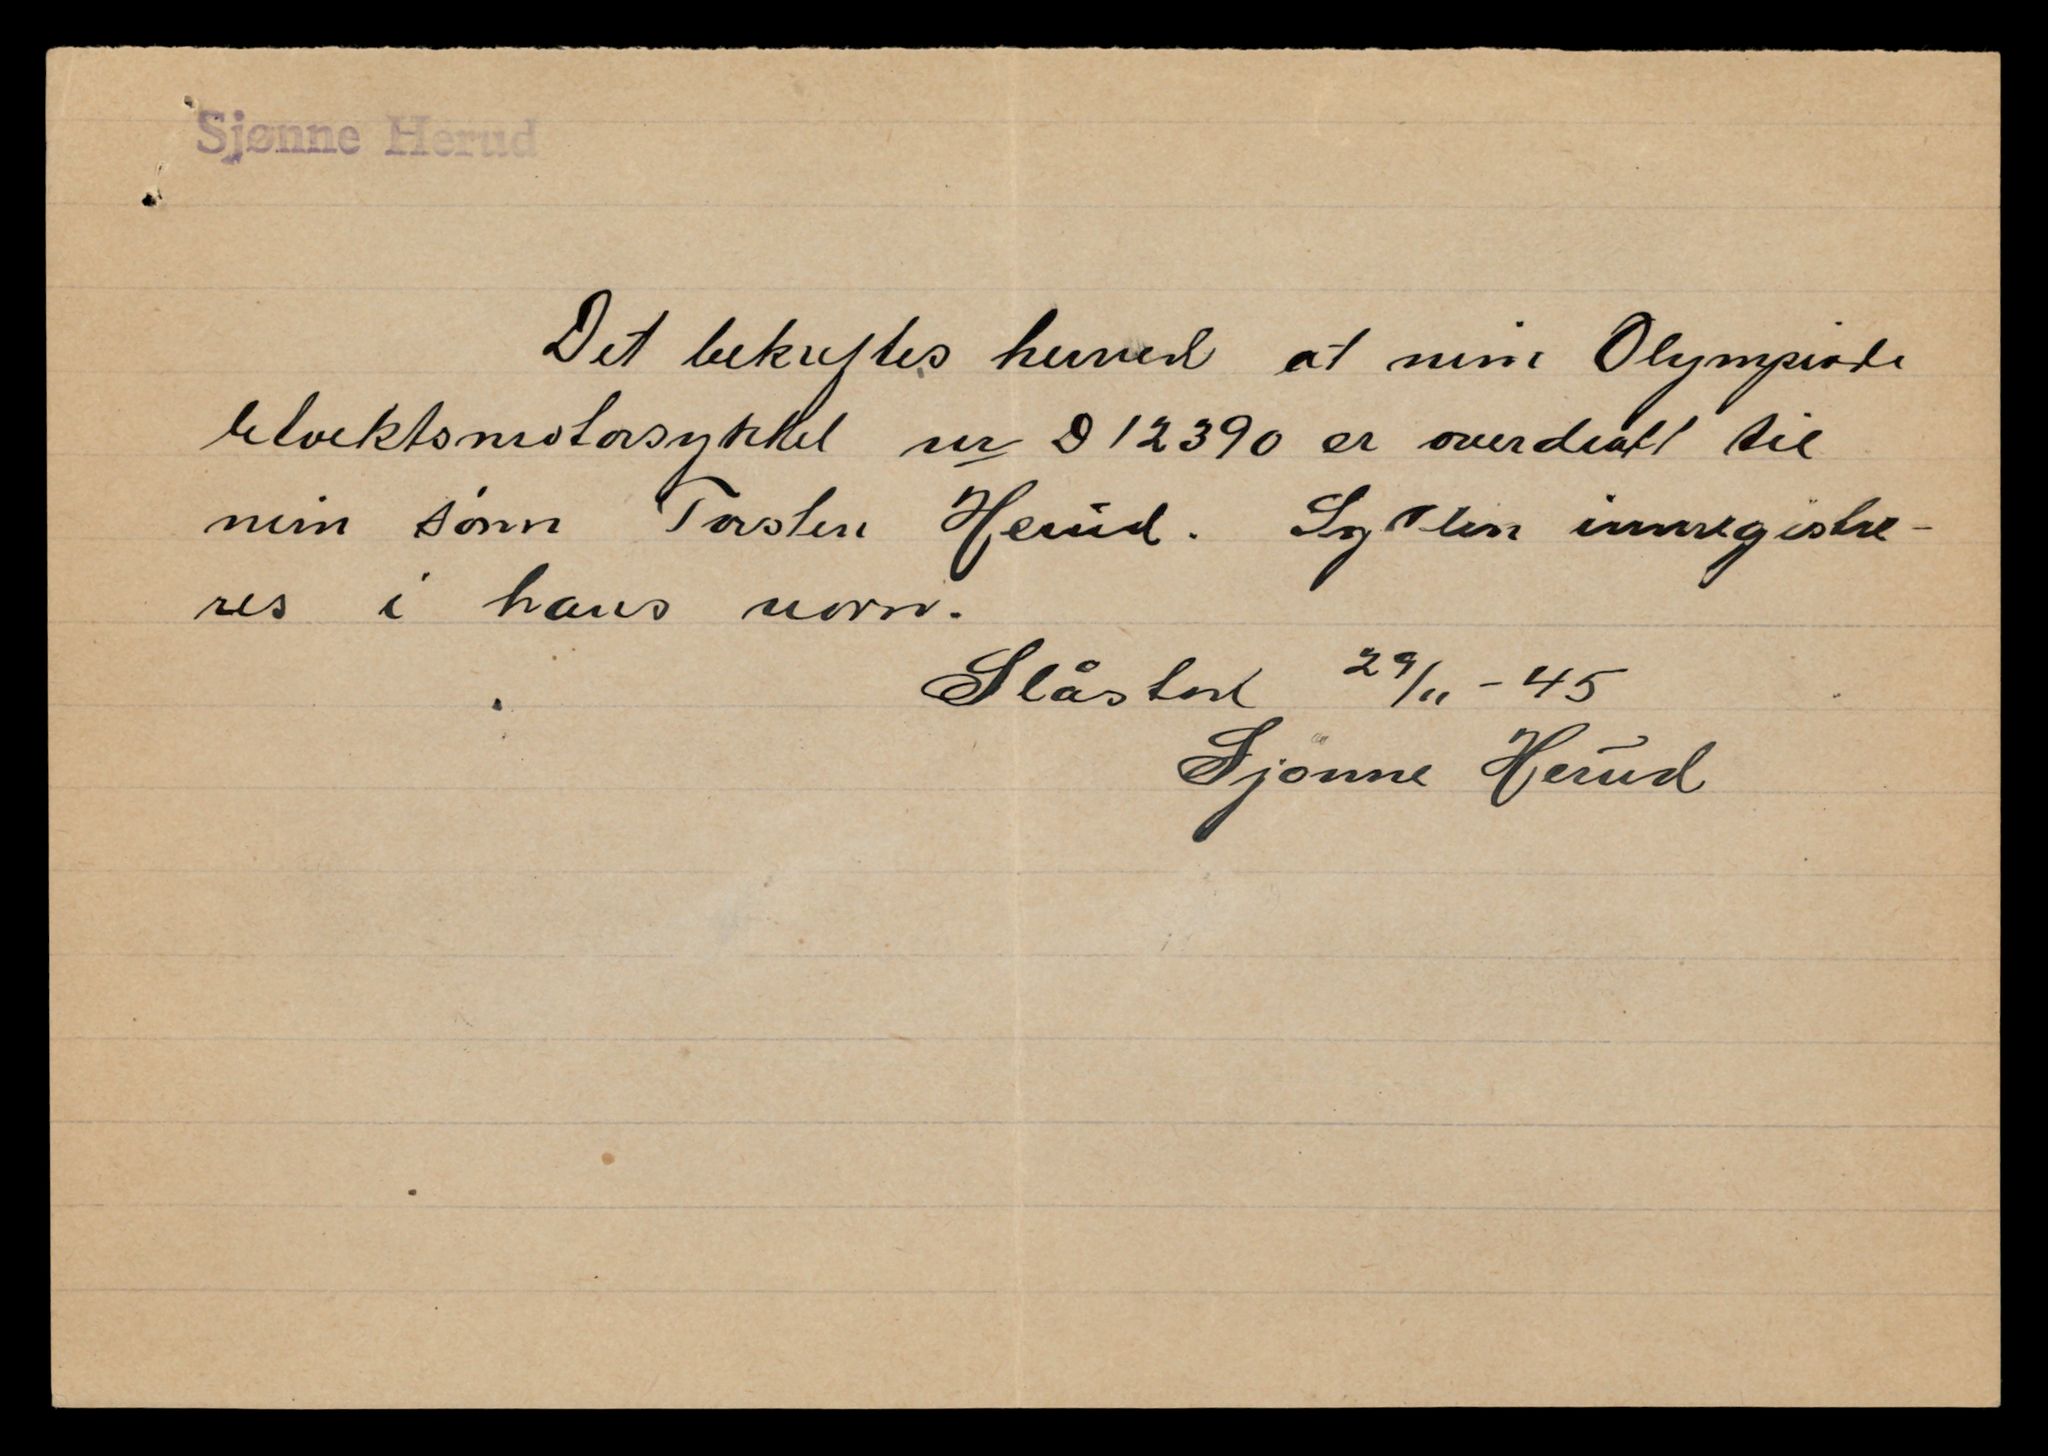 Sjønne Herud
Det bekreftes herved at min Olympiade
letvektsmotorsykkel nr D 12390 er overdratt til
min sønn Torsten Herud. Syklen innregistre-
res i hans navn.
Slåstad 29/11 - 45
Sjønne Herud